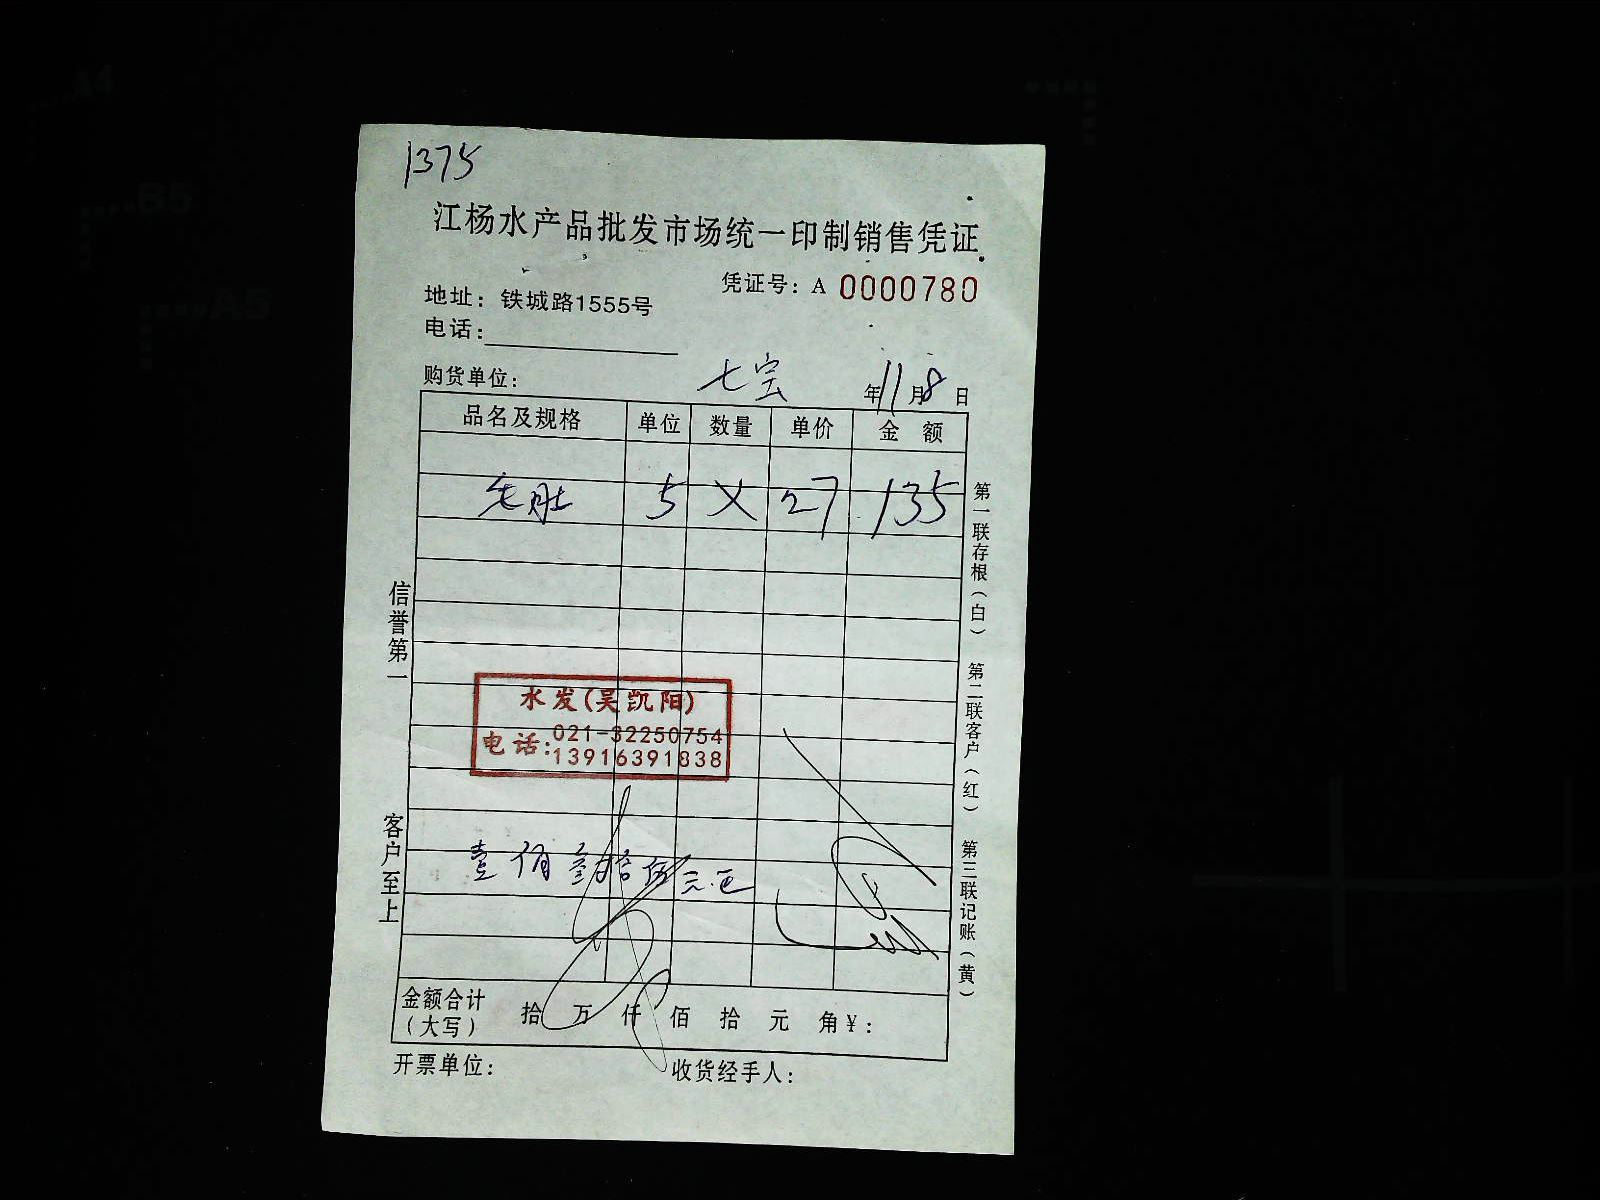 1375
江杨水产品批发市场统一印制销售凭证
凭证号：A 0000780
地址：铁城路1555号
电话：
购货单位：
七宝 年11月8日
品名及规格 单位 数量 单价 金 额
毛肚 5 X 27 135
信誉第一
客户至上
水发(吴凯阳)
电话：021-32250754
13916391838
壹佰叁拾伍元正
金额合计（大写） 拾 万 仟 佰 拾 元 角￥：
开票单位： 收货经手人：
第一联存根（白） 第二联客户（红） 第三联记账（黄）